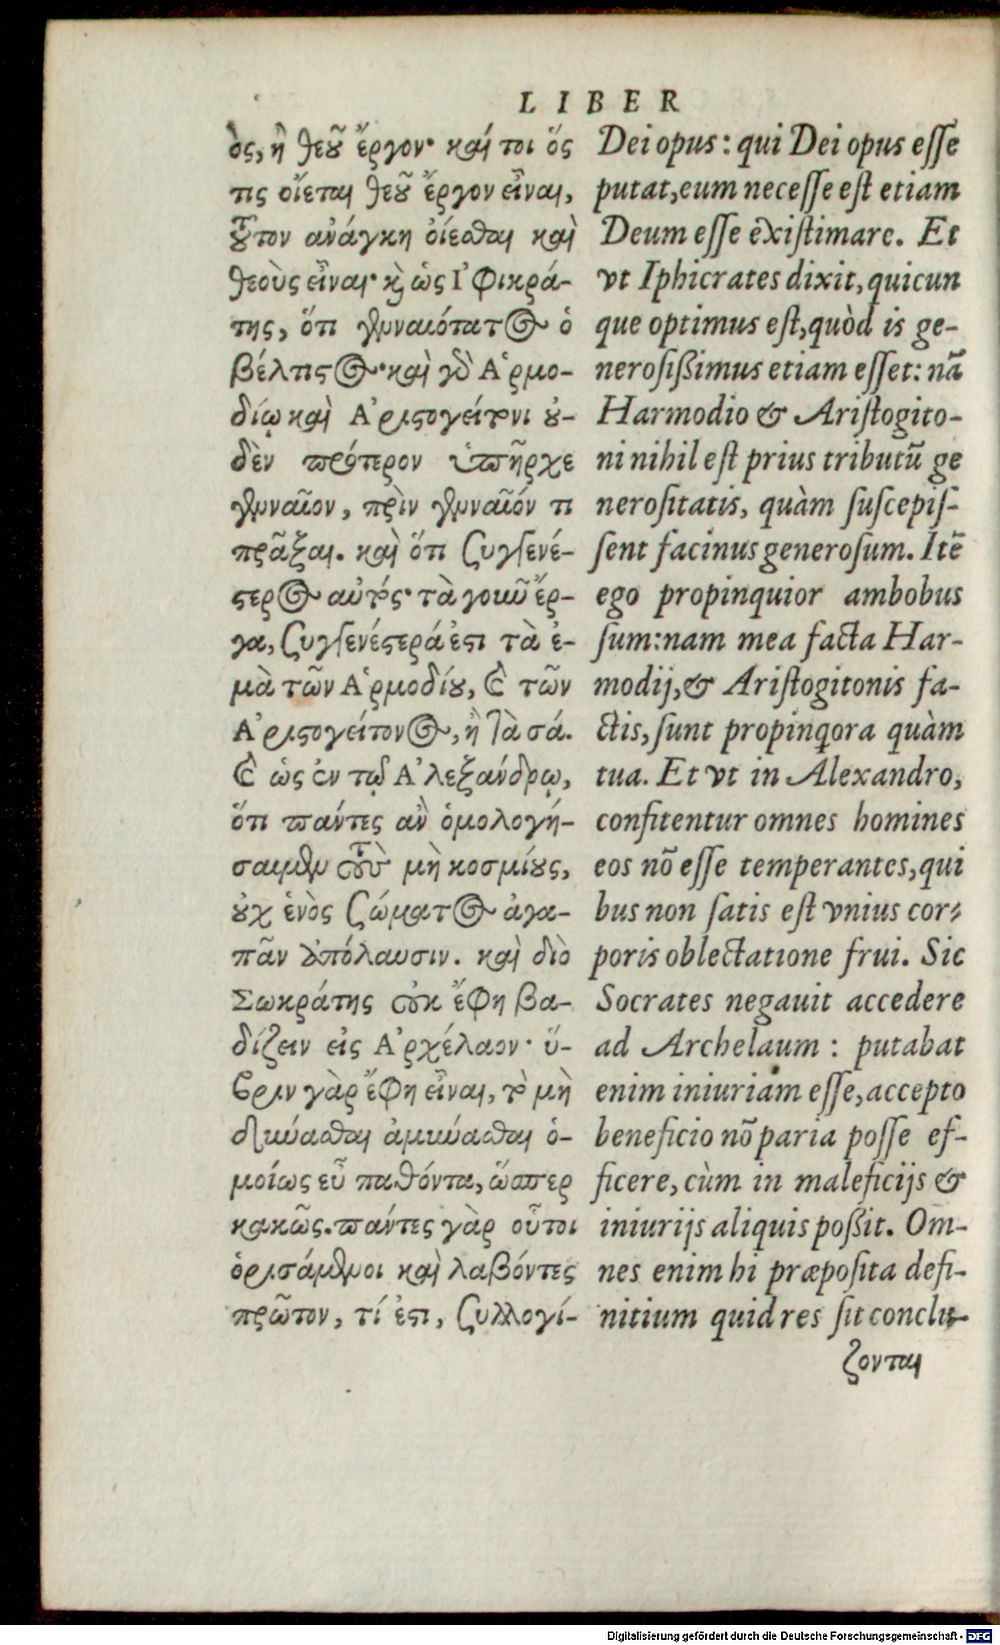 LIBER
ὸς, ἢ θεοῦ ἔργον· καί τοι ὅς
τις οἴεται θεοῦ ἔργον εἶναι,
τοῦτον ἀνάγκη οἴεσθαι καὶ
θεοὺς εἶναι· καὶ ὡς Ἰφικρά-
της, ὅτι γενναιότατος ὁ
βέλτιστος· καὶ γὰρ Ἁρμο-
δίῳ καὶ Ἀριστογείτονι οὐ-
δὲν πρότερον ὑπῆρχε
γενναῖον, πρὶν γενναῖόν τι
πρᾶξαι. καὶ ὅτι συγγενέ-
στερος αὐτός· τὰ γοῦν ἔρ-
γα, συγγενέστερά ἐστι τὰ ἐ-
μὰ τῶν Ἁρμοδίου, καὶ τῶν
Ἀριστογείτονος, ἢ τὰ σά.
καὶ ὡς ἐν τῷ Ἀλεξάνδρῳ,
ὅτι πάντες ἂν ὁμολογή-
σαιμεν τοὺς μὴ κοσμίους,
οὐχ ἑνὸς σώματος ἀγα-
πᾶν ἀπόλαυσιν. καὶ διὸ
Σωκράτης οὐκ ἔφη βα-
δίζειν εἰς Ἀρχέλαον· ὕ-
βριν γὰρ ἔφη εἶναι, τὸ μὴ
δύνασθαι ἀμύνασθαι ὁ-
μοίως εὖ παθόντα, ὥσπερ
κακῶς. πάντες γὰρ οὗτοι
ὁρισάμενοι καὶ λαβόντες
πρῶτον, τί ἐστι, συλλογί-
Dei opus: qui Dei opus esse
putat, eum necesse est etiam
Deum esse existimare. Et
vt Iphicrates dixit, quicun
que optimus est, quòd is ge-
nerosißimus etiam esset: nã
Harmodio & Aristogito-
ni nihil est prius tributũ ge
nerositatis, quàm suscepis-
sent facinus generosum. Itẽ
ego propinquior ambobus
sum: nam mea facta Har-
modij, & Aristogitonis fa-
ctis, sunt propinqora quàm
tua. Et vt in Alexandro,
confitentur omnes homines
eos nõ esse temperantes, qui
bus non satis est vnius cor-
poris oblectatione frui. Sic
Socrates negauit accedere
ad Archelaum : putabat
enim iniuriam esse, accepto
beneficio nõ paria posse ef-
ficere, cùm in maleficijs &
iniurijs aliquis poßit. Om-
nes enim hi præposita defi-
nitium quid res sit conclu-
ζονται
Digitalisierung gefördert durch die Deutsche Forschungsgemeinschaft - DFG